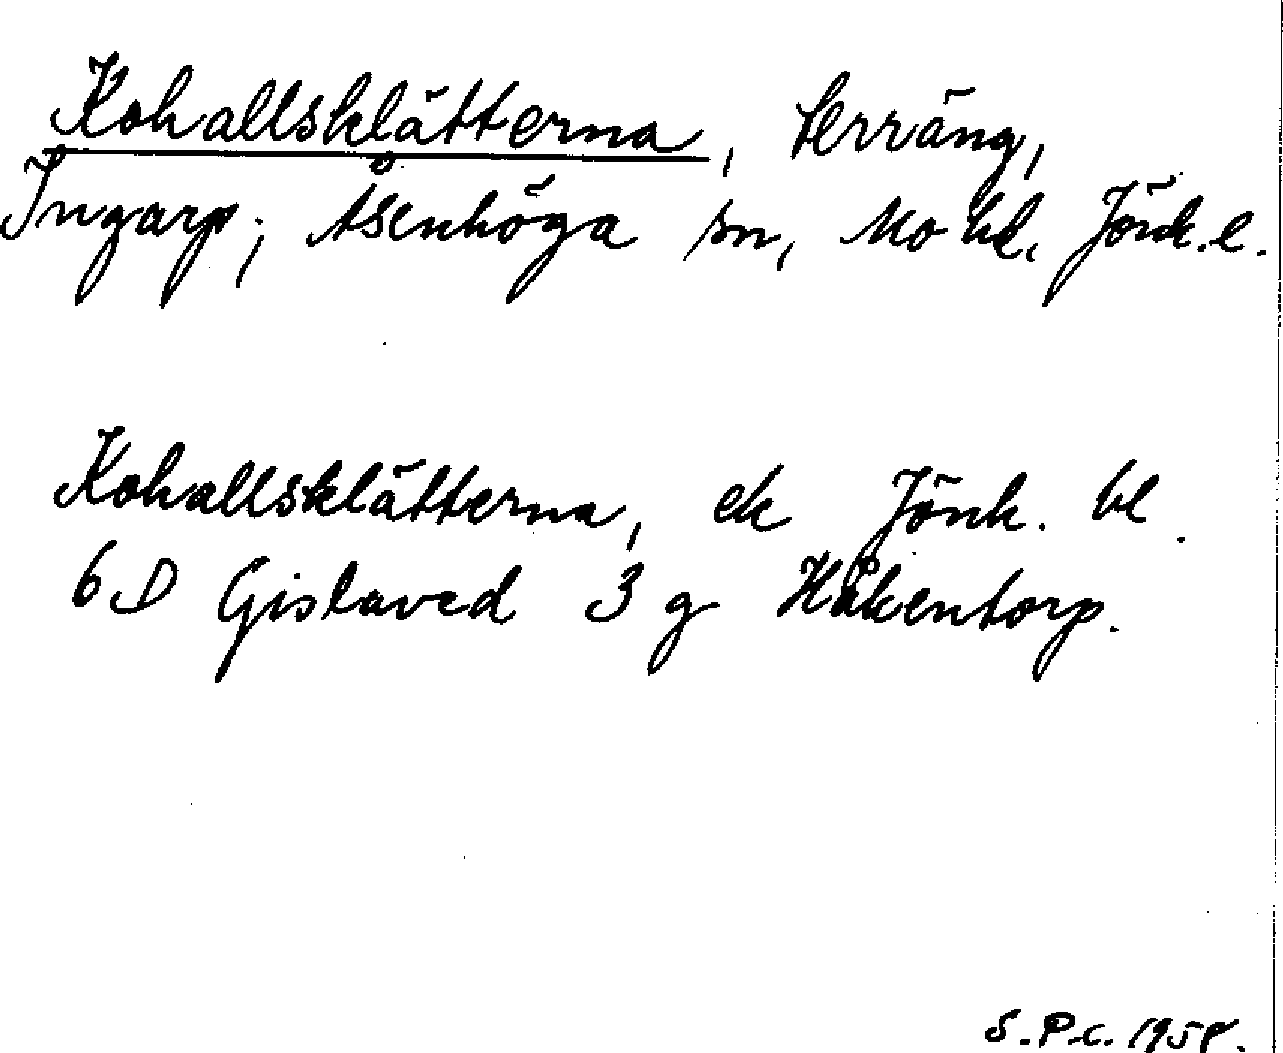 Kohallsklätterna, terräng,
Ingarp; Åsenhöga sn, Mo hd. Jönk. l.
Kohallsklätterna, ek Jönk. bl.
6D Gislaved 3 g Håkentorp.
S.P.c. 1958.